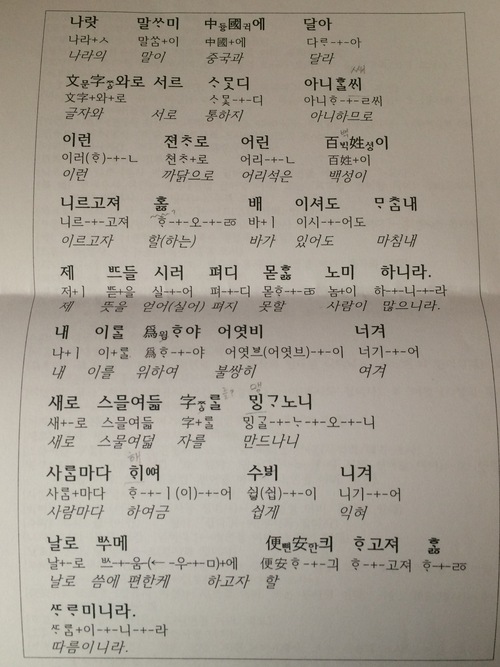 나랏 말ᄊᆞ미 中듀ᇰ國귁에 달아
나라+ㅅ 말ᄊᆞᆷ+이 中國+에 다ᄅᆞ-+-아
나라의 말이 중국과 달라
文문字ᄍᆞᆼ와로 서르 ᄉᆞᄆᆞᆺ디 아니ᄒᆞᆯᄊᆡ
文字+와+로 ᄉᆞᄆᆞᆾ-+-디 아니ᄒᆞ-+-ㄹᄊᆡ
글자와 서로 통하지 아니하므로
백
이런 젼ᄎᆞ로 어린 百ᄇᆡᆨ姓셔ᇰ이
이러(ᄒᆞ)-+-ㄴ 젼ᄎᆞ+로 어리-+-ㄴ 百姓+이
이런 까닭으로 어리석은 백성이
니르고져 호ᇙ 배 이셔도 ᄆᆞᄎᆞᆷ내
니르-+-고져 ᄒᆞ-+-오-+-ㅭ 바+ㅣ 이시-+-어도
이르고자 할(하는) 바가 있어도 마침내
제 ᄠᅳ들 시러 펴디 몯ᄒᆞᇙ 노미 하니라.
저+ㅣ ᄠᅳᆮ+을 실-+-어 펴-+-디 몯ᄒᆞ-+-ㅭ 놈+이 하-+-니-+-라
제 뜻을 얻어(실어) 펴지 못할 사람이 많으니라.
내 이ᄅᆞᆯ 爲윙ᄒᆞ야 어엿비 너겨
나+ㅣ 이+ᄅᆞᆯ 爲ᄒᆞ-+-야 어엿브(어엿ᄇᆞ)-+-이 너기-+-어
내 이를 위하여 불쌍히 여겨
새로 스믈여듧 字ᄍᆞᆼᄅᆞᆯ ᄆᆡᇰᄀᆞ노니
새+-로 스믈여듧 字+ᄅᆞᆯ ᄆᆡᇰᄀᆞᆯ-+-ᄂᆞ-+-오-+-니
새로 스물여덟 자를 만드나니
해
사ᄅᆞᆷ마다 ᄒᆡᅇᅧ 수ᄫᅵ 니겨
사ᄅᆞᆷ+마다 ᄒᆞ-+-ㅣ(이)-+-어 쉽(쉽)-+-이 니기-+-어
사람마다 하여금 쉽게 익혀
날로 ᄡᅮ메 便뼌安한킈 ᄒᆞ고져 ᄒᆞᇙ
날+-로 ᄡᅳ-+-움-(← -우-+-ㅁ)+에 便安ᄒᆞ-+-긔 ᄒᆞ-+-고져 ᄒᆞ-+-ㅭ
날로 씀에 편한케 하고자 할
ᄯᆞᄅᆞ미니라.
ᄯᆞᄅᆞᆷ+이-+-니-+-라
따름이니라.